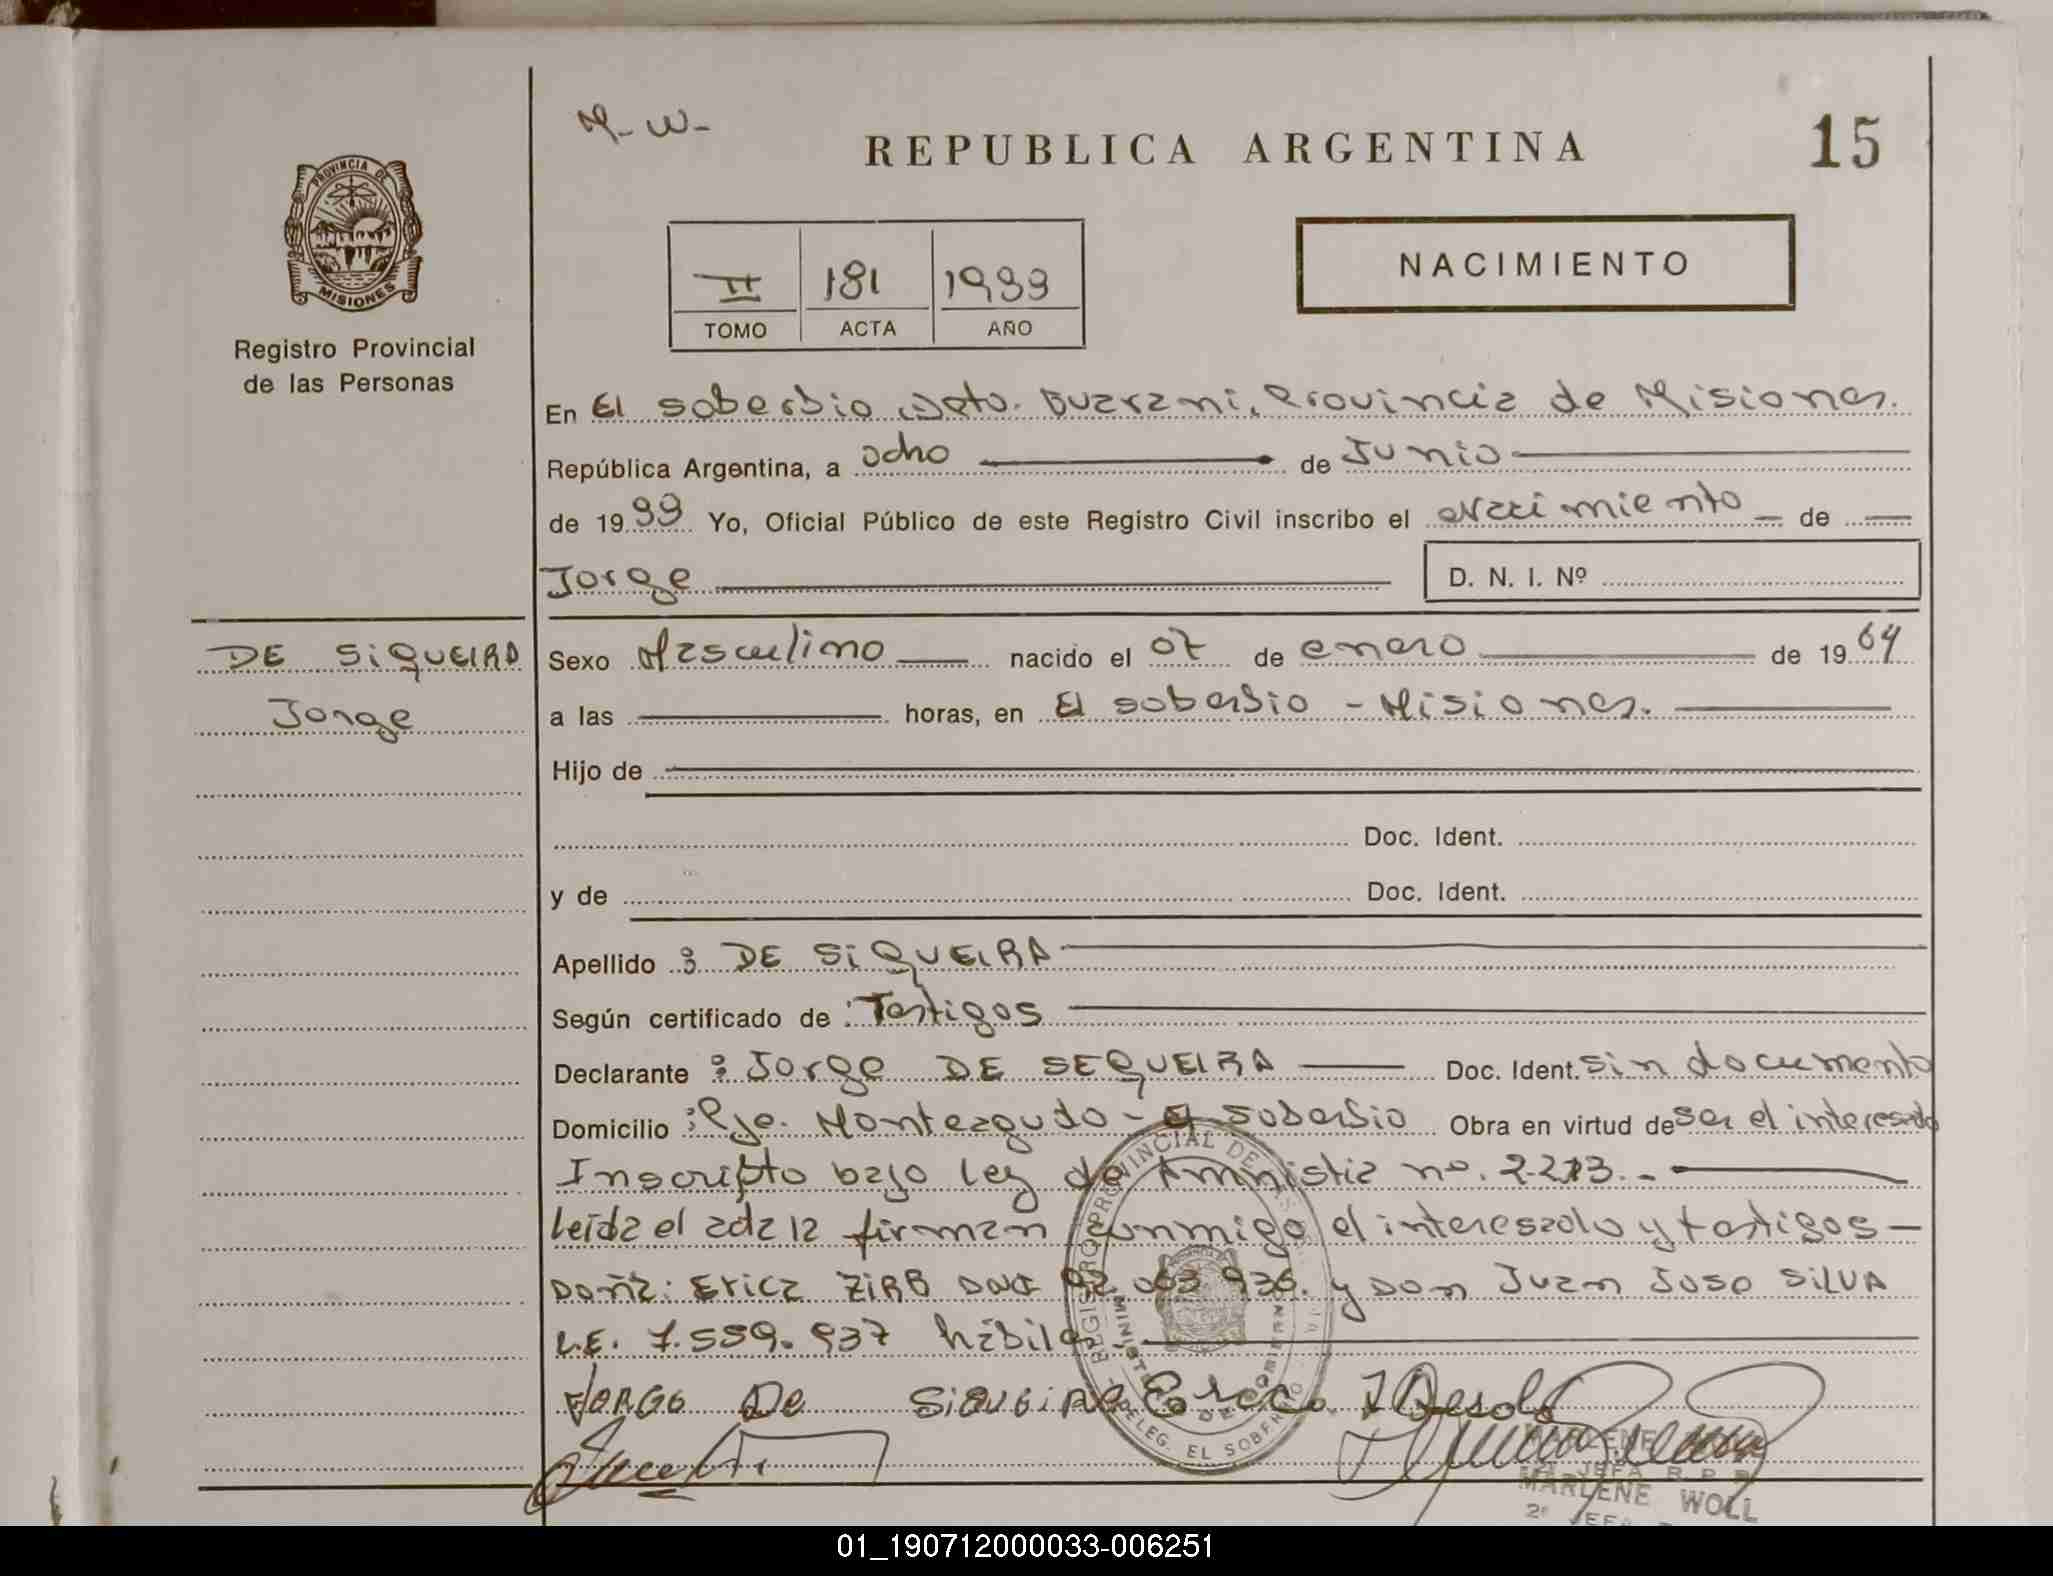 M-W-
REPUBLICA ARGENTINA
15
PROVINCIA DE
MISIONES
Registro Provincial
de las Personas
II 181 1999
TOMO ACTA AÑO
NACIMIENTO
En El soberbio Dpto. Guarani, Provincia de Misiones.
República Argentina, a ocho de Junio
de 1999 Yo, Oficial Público de este Registro Civil inscribo el Nacimiento de
Jorge
D. N. I. Nº
DE SiQUEIRA
Jorge
Sexo Masculino nacido el 07 de enero de 1964
a las horas, en El soberbio - Misiones.
Hijo de
Doc. Ident.
y de Doc. Ident.
Apellido : DE SiQUEIRA
Según certificado de : Testigos
Declarante : Jorge DE SEQUEIRA Doc. Ident. sin documento
Domicilio : Pje. Monteagudo - El soberbio Obra en virtud de ser el interesado
Inscripto bajo Ley de Amnistia no. 2.213.-
Leída el acta la firman conmigo el interesado y testigos
Doña: Erica ZIRB DNI 92.063.936. y Don Juan Jose SILVA
L.E. 7.559.937 hábiles.
JORGO De SiQUEiRA Erica
REGISTRO PROVINCIAL DE LAS PERSONAS
MINISTERIO DE GOBIERNO
DELEG. EL SOBERBIO
MARLENE
2º JEFA R. P. P.
MARLENE WOLL
2º JEFA
01_190712000033-006251